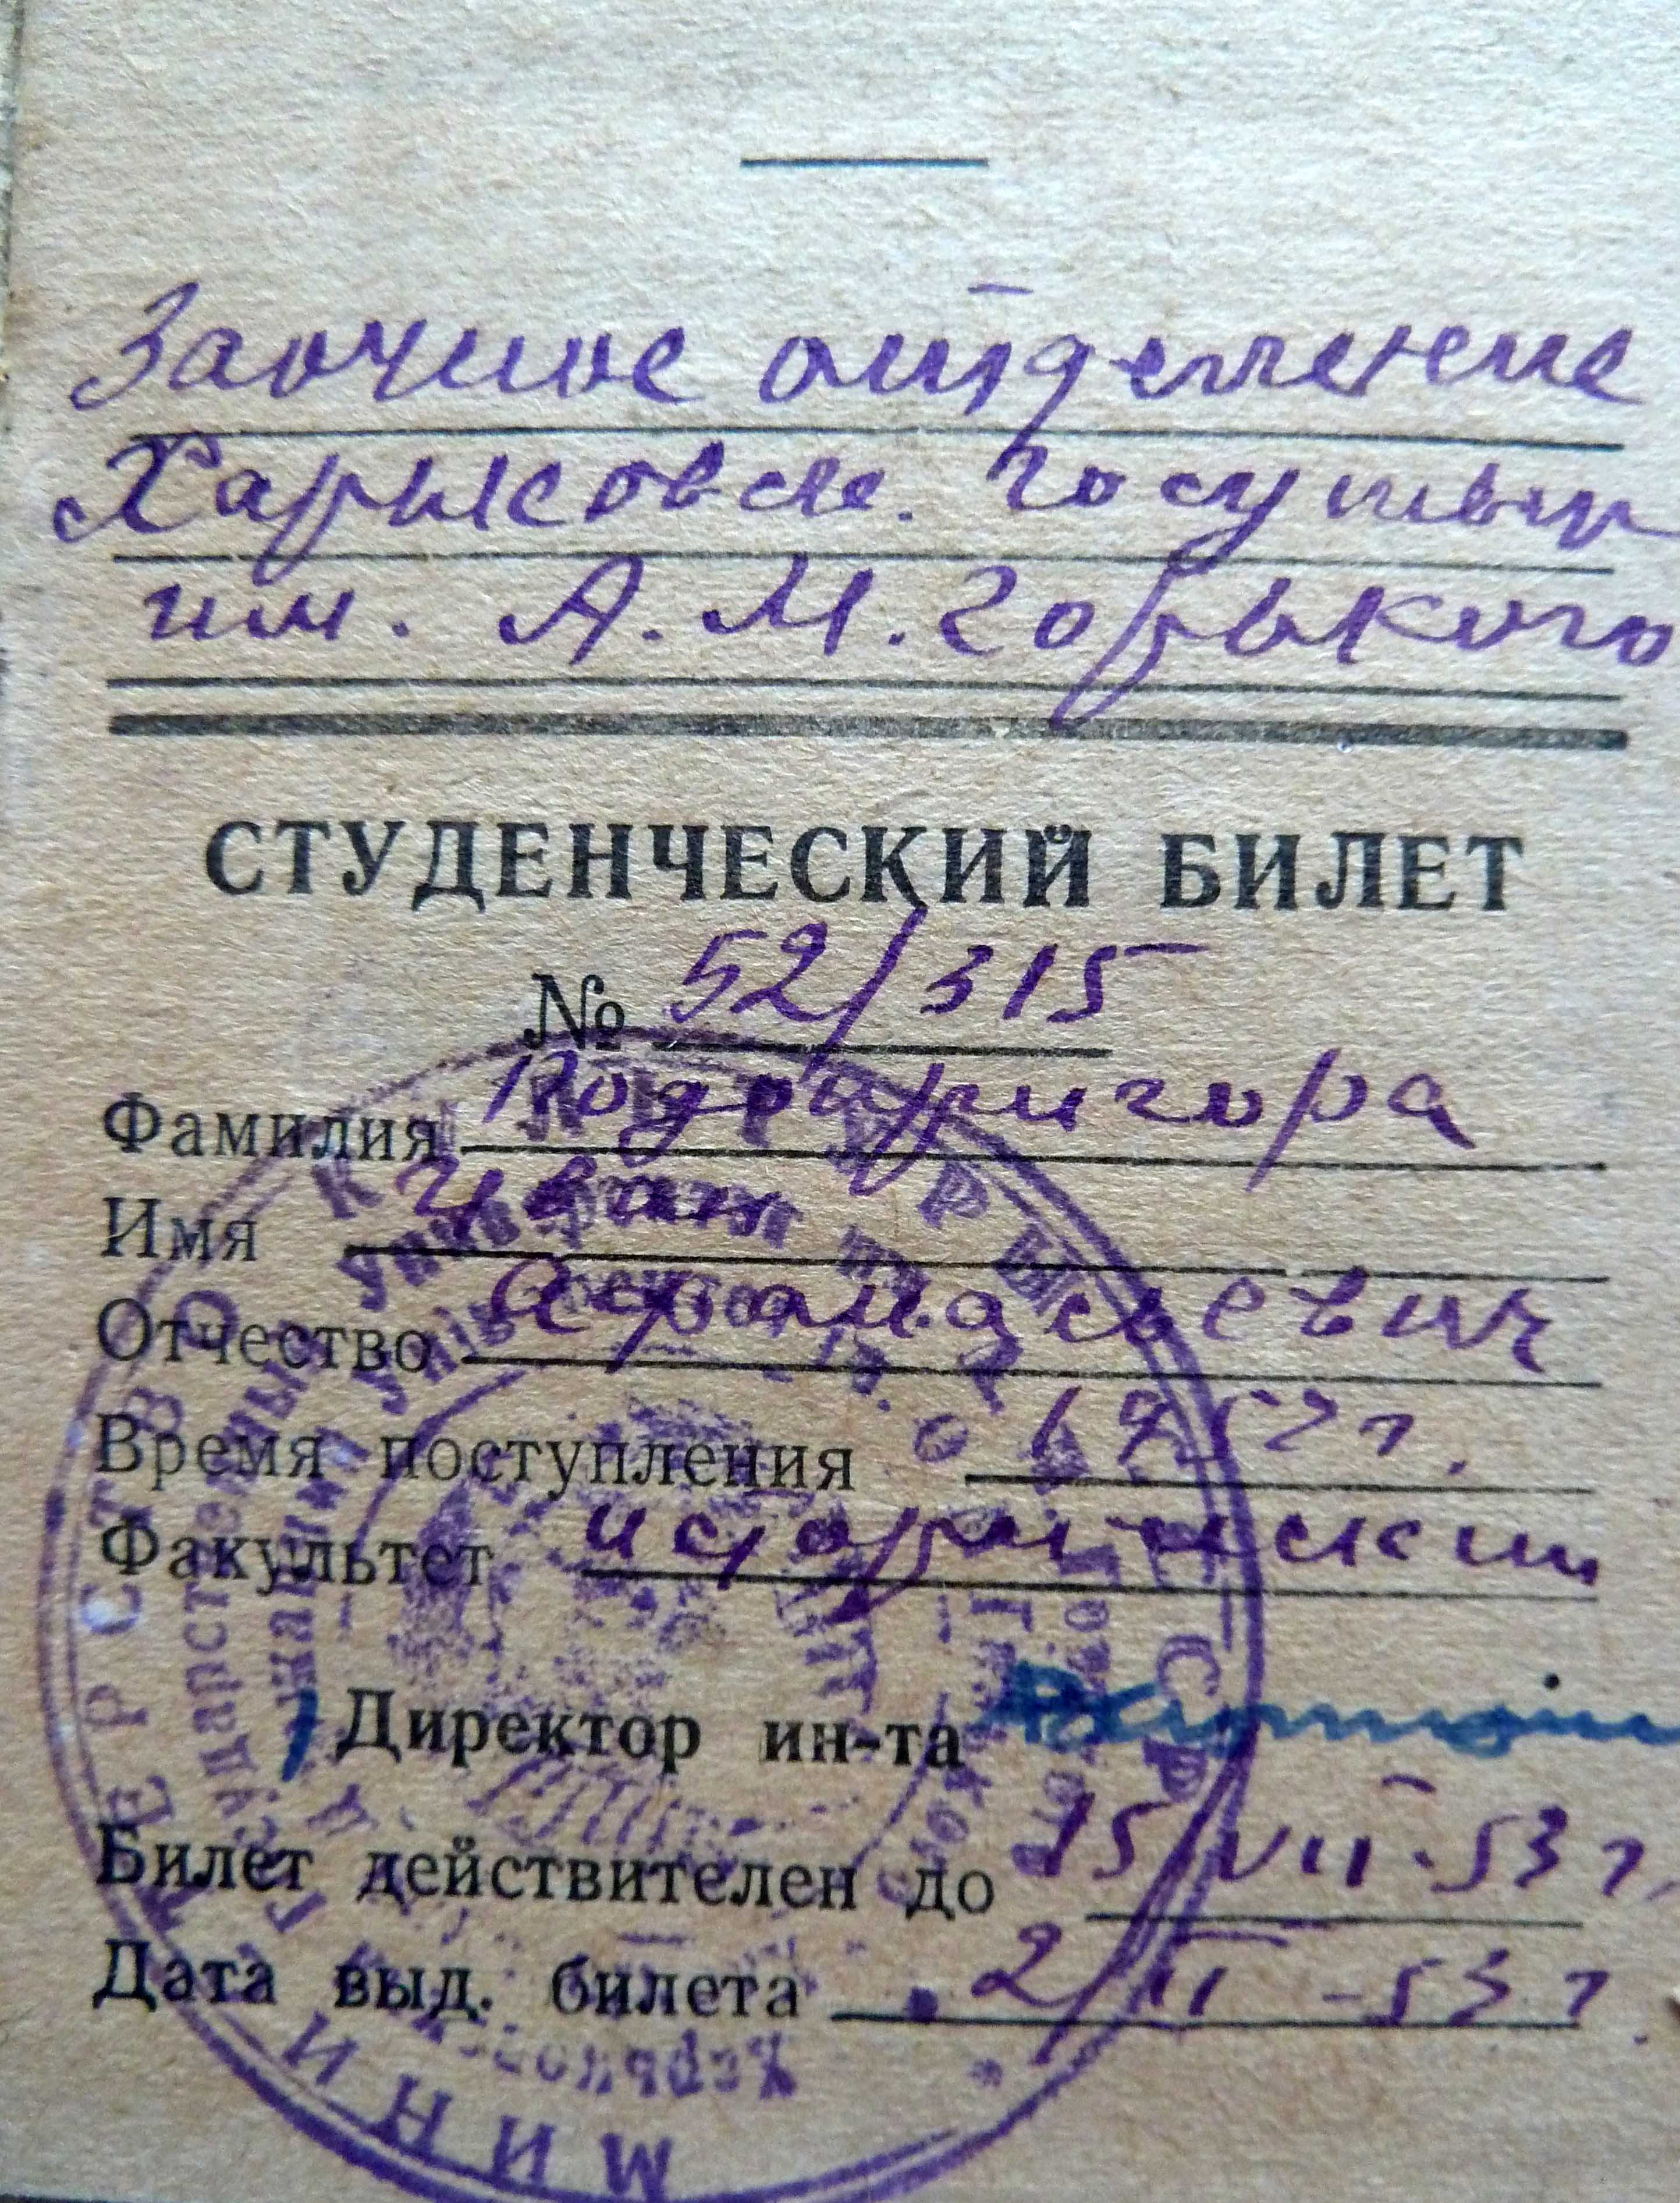 Заочное отделение
Харьковск. госунивер
им. А. М. Горького
СТУДЕНЧЕСКИЙ БИЛЕТ
№ 52/315
Фамилия Водопригора
Имя Иван
Отчество
Время поступления 1952 г.
Факультет исторический
Директор ин-та
Билет действителен до 15/VII-53 г.
Дата выд. билета 2/II-53 г.
МИНИСТЕРСТВО КУЛЬТУРЫ СССР